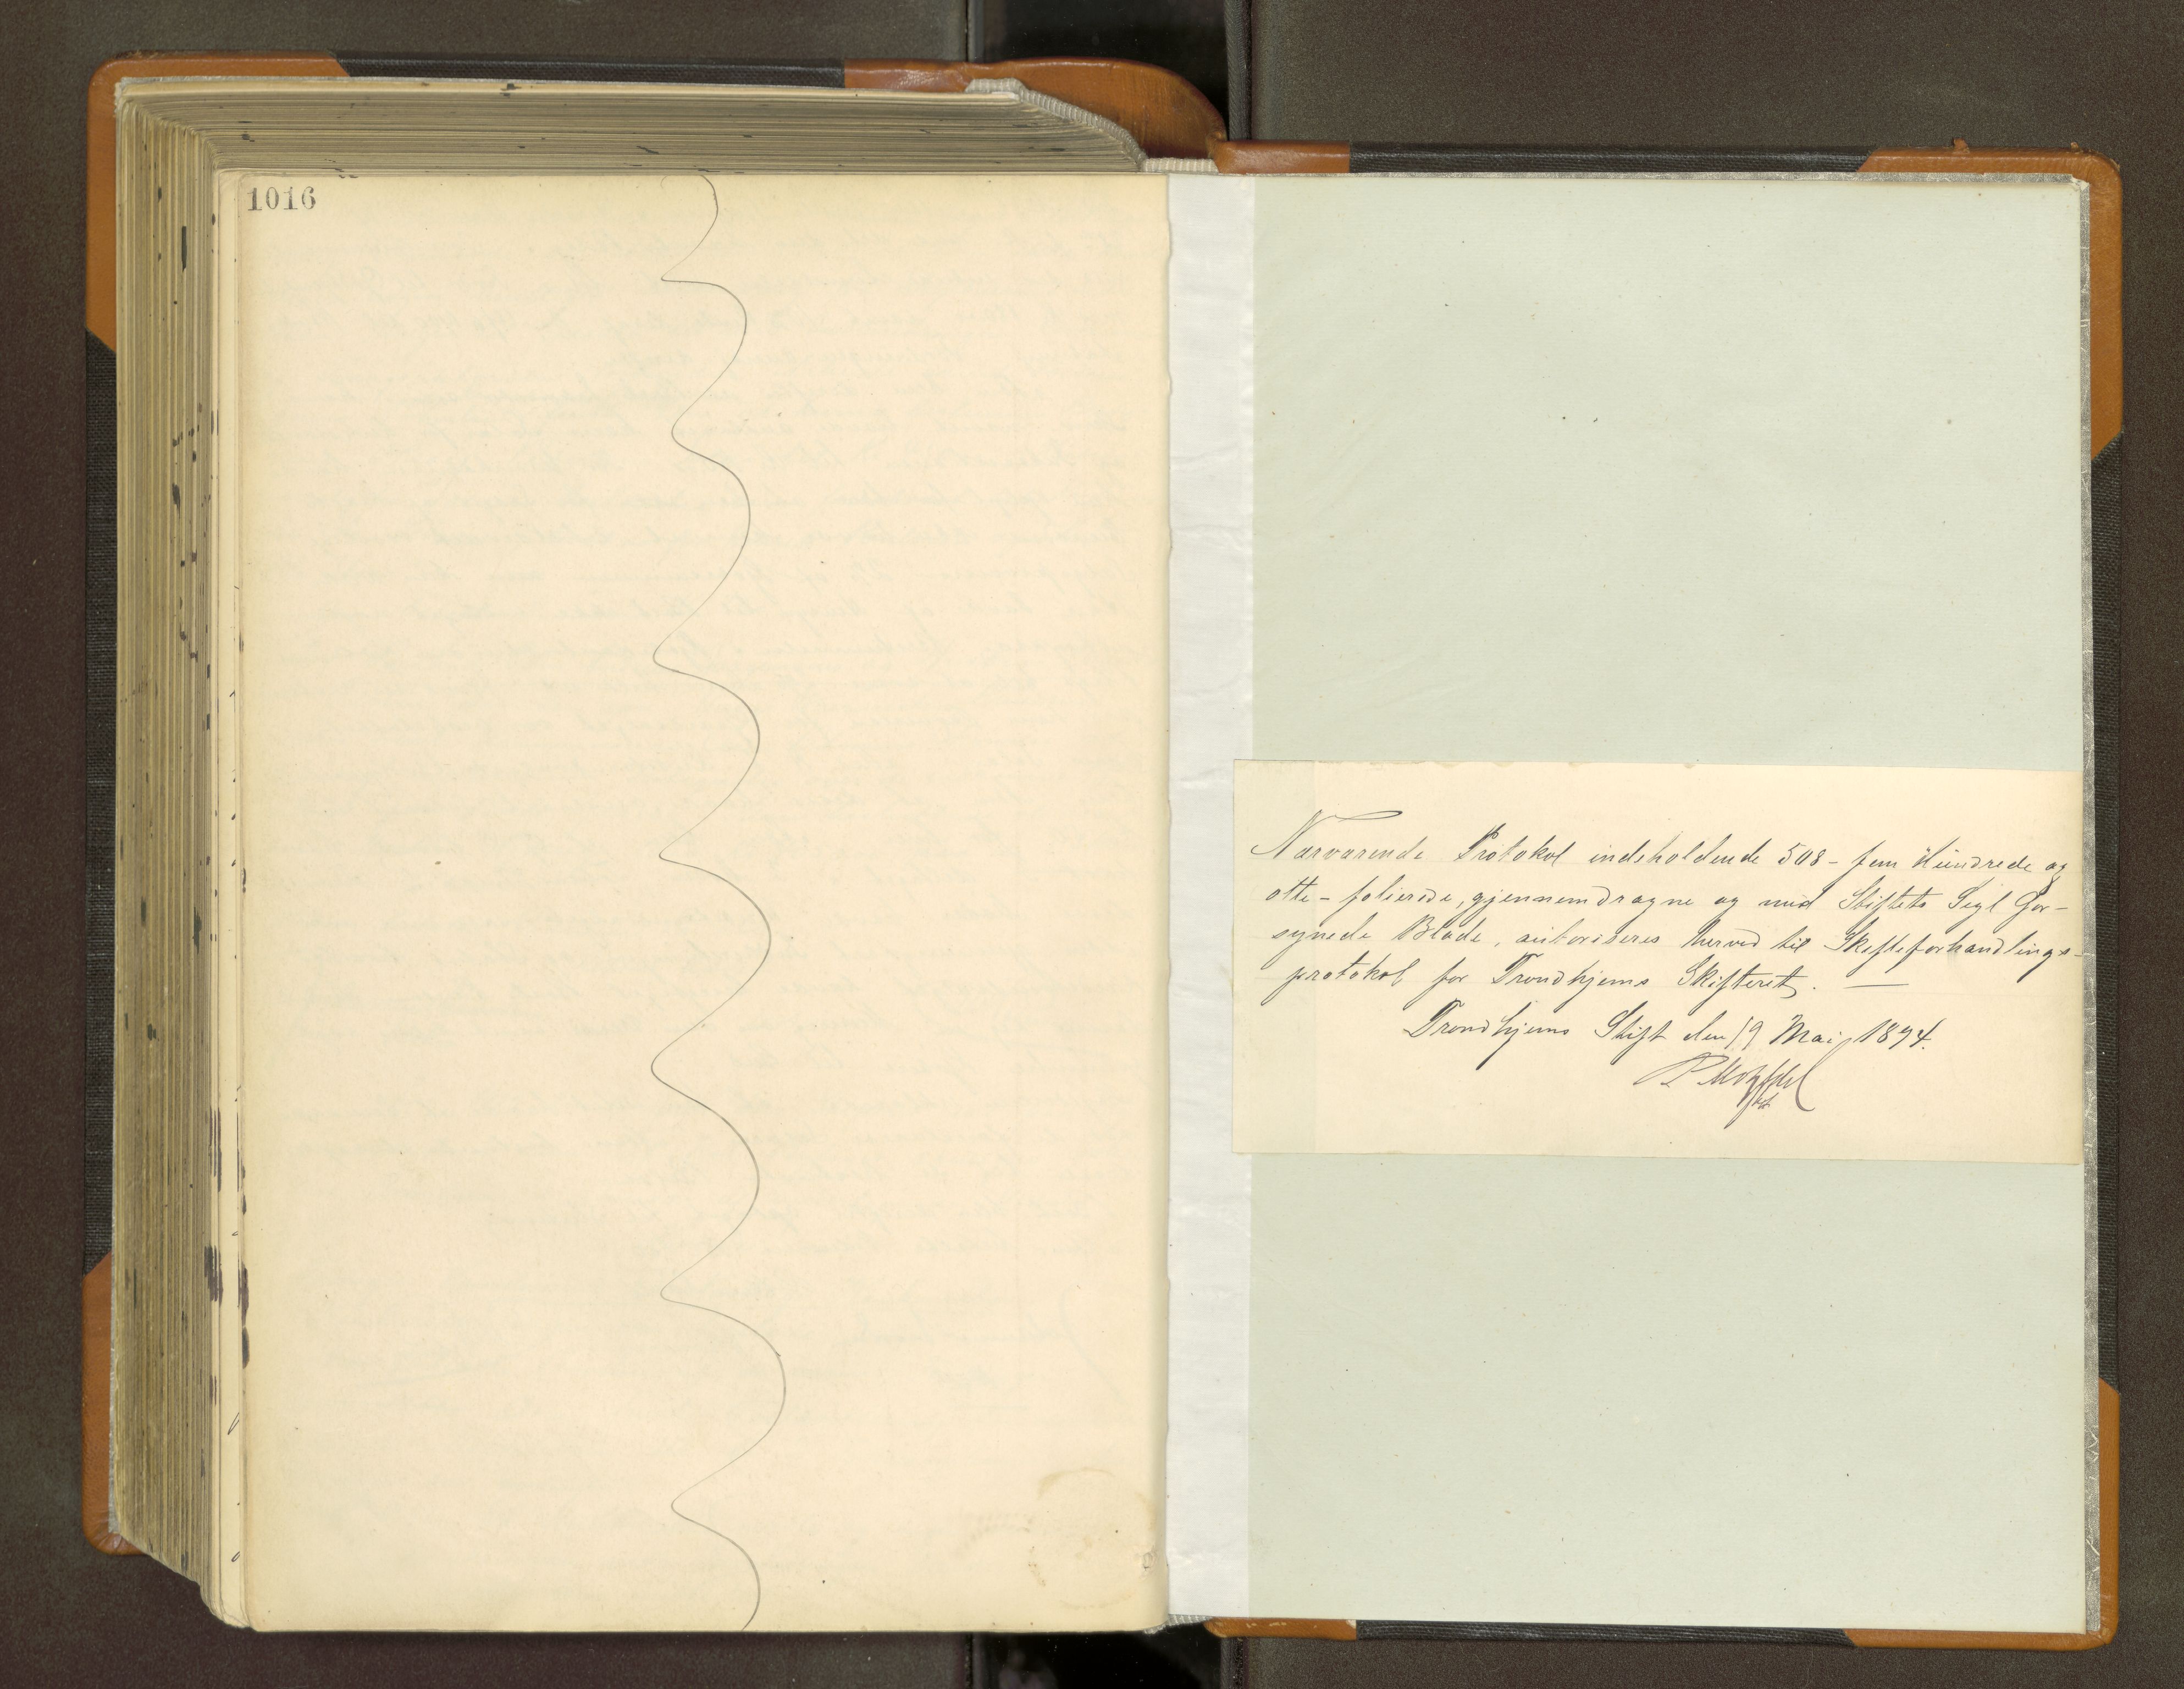 1016
Nærværende Protokol indeholdende 508 - fem Hundrede og
otte - folierede, gjennemdragne og med Stiftets Segl For-
synede Blade, autoriseres herved til Skifteforhandlings-
protokol for Trondhjems Skifteret. —
Trondhjems Stift den 19 Mai 1894.